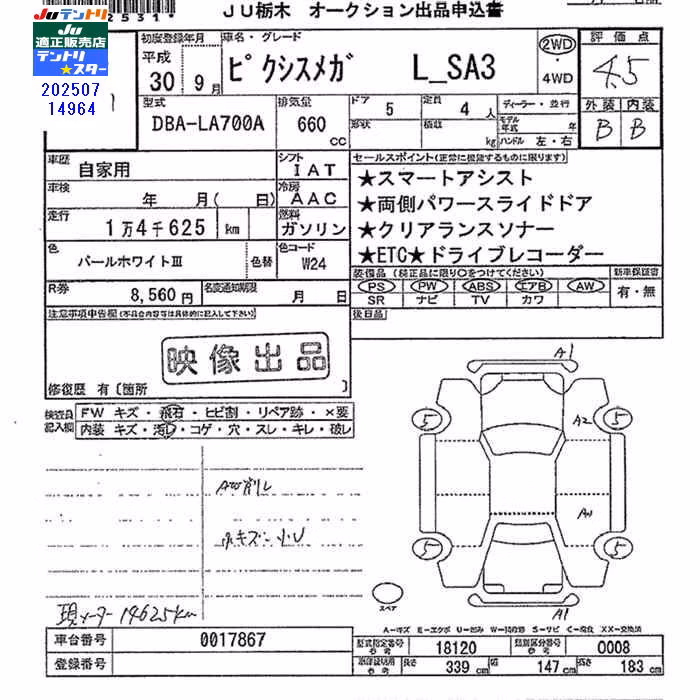 JUテントリ
JU
適正販売店
テントリ
★スター
202507
14964
2531*
JU栃木 オークション出品申込書
初度登録年月
平成
30 9月
車名・グレード
ピクシスメガ L_SA3
2WD
・
4WD
評価点
4.5
外装 内装
B B
型式
DBA-LA700A
排気量
660 cc
ドア 5
形状
定員 4 人
積載 kg
ディーラー・並行
モデル年式 年
ハンドル 左・右
車歴 自家用
シフト IAT
車検 年 月( 日)
冷房 AAC
走行 1万4千625 km
燃料 ガソリン
色 パールホワイトⅢ 色替
色コード W24
R券 8,560円
名変通知期限 月 日
セールスポイント(正常に機能するものに限ります)
★スマートアシスト
★両側パワースライドドア
★クリアランスソナー
★ETC★ドライブレコーダー
装備品(純正品に限り○をつけてください)
PS PW ABS エアB AW
SR ナビ TV カワ
新車保証書
有・無
注意事項申告欄(不具合内容等は具体的に記入して下さい)
後日品
映像出品
修復歴 有〔箇所 〕
検査員
記入欄
FW キズ・飛石・ヒビ割・リペア跡・×要
内装 キズ・汚れ・コゲ・穴・スレ・キレ・破レ
AW削レ
内キズ・小U
現メーター 14625km
A1
5 A2 5
AW
5 5
A1
スペア
A-キズ E-エクボ U-凹み W-補修跡 S-サビ C-腐食 XX-交換済
車台番号 0017867
登録番号
型式指定番号
参考
18120
類別区分番号
参考
0008
参考
長さ 339 cm 幅 147 cm 高さ 183 cm